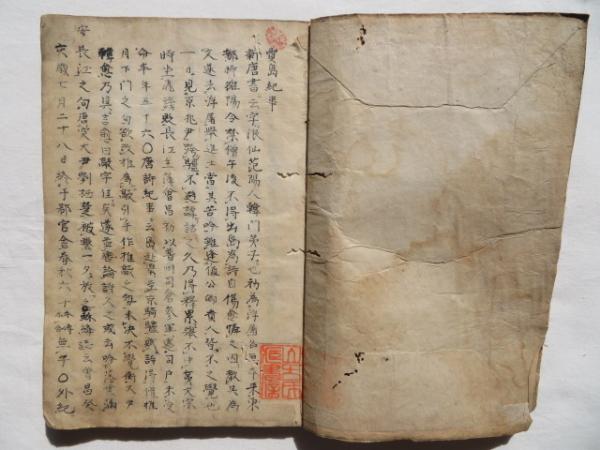 賈島紀事
新唐書云字浪仙范陽人韓門弟子也初為浮屠名無本來東
都時雒陽令禁僧午後不得出島為詩自傷愈憐之因敎其為
文遂去浮屠擧進士當其苦吟雖逢值公卿貴人皆不之覺也
一日見京兆尹跨驢不避謼詰之久乃得釋累擧不中第文宗
時坐飛謗貶長江主簿會昌初以普州司倉參軍遷司戶未受
命卒年五十六〇唐詩紀事云島赴擧至京騎驢賦詩得僧推
月下門之句欲改推為敲引手作推敲之勢未決不覺衝大尹
韓愈乃具言愈曰敲字佳矣遂並轡論詩久之或云吟落葉滿
長江之句唐突大尹劉栖楚被繫一夕放之蘇絳誌云會昌癸
安
亥歲七月二十八日終于郡官舍春秋六十無子〇外紀